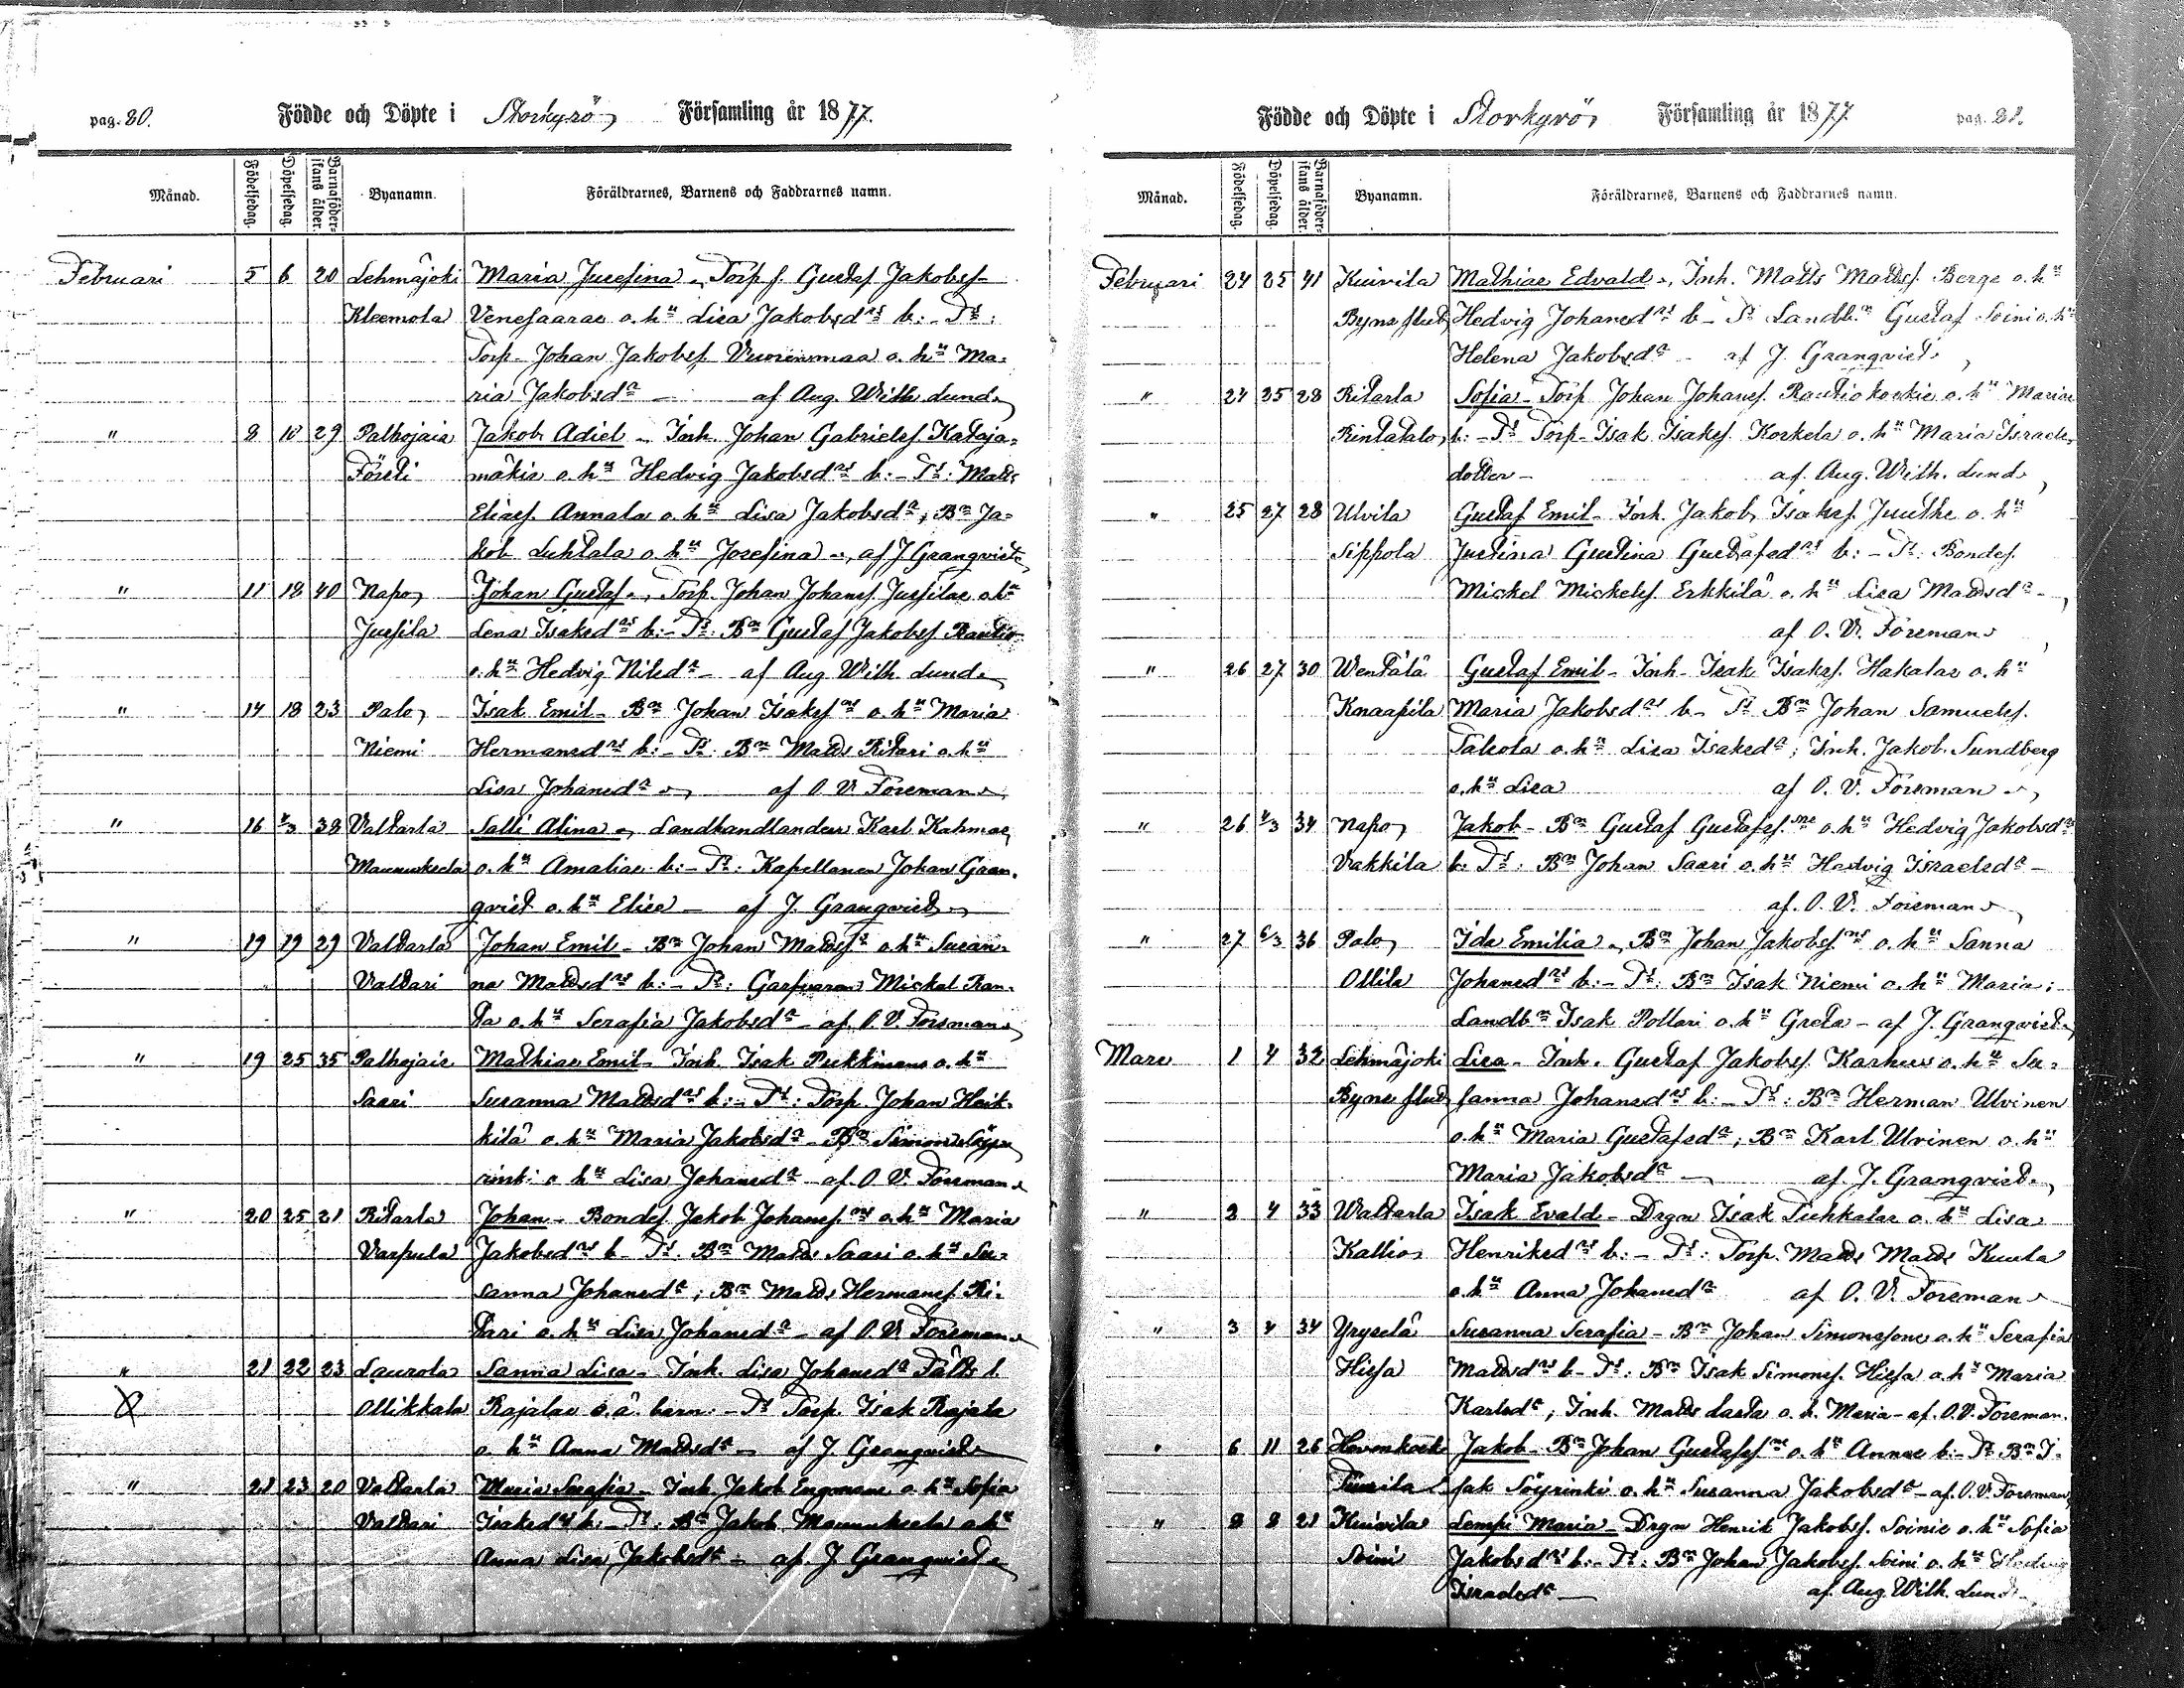 pag. 80. Födde och Döpte i Storkyrö Församling år 1877.
Månad. Födelsedag. Döpelsedag. Barnaföderskans ålder. Byanamn. Föräldrarnes, Barnens och Faddrarnes namn.
Februari 5 6 20 Lehmäjoki Maria Josefina - Torp. s. Gustaf Jakobss.
Kleemola Venesaaras o. hu Lisa Jakobsdrs b: - Ts:
Torp. Johan Jakobss. Vuorenmaa o. hu Ma-
ria Jakobsda - af Aug. Wilh. Lund.
" 8 10 29 Palhojais Jakob Adiel - Inh. Johan Gabrielss. Kataja-
Försti mäkis o. hu Hedvig Jakobsdrs b: - Ts: Matts
Eliass. Annala o. hu Lisa Jakobsdr; Bn Ja-
kob Luhtala o. hu Josefina - af J. Granqvist
" 11 18 40 Napo Johan Gustaf - Torp. Johan Johans. Jussilas o. hu
Jussila Lena Isaksdrs b: - Ts: Bn Gustaf Jakobss. Rautio
o. hu Hedvig Nilsdr - af Aug. Wilh. Lund.
" 14 18 23 Palo Isak Emil - Bn Johan Isakss ns o. hu Maria
Niemi Hermansdrs b: - Ts: Bn Matts Ritari o. hu
Lisa Johansdr - af O. V. Forsman
" 16 4/3 38 Valtarla Salli Alina - Landthandlanden Karl Kahmas
Maunuksela o. hu Amalias b: - Ts: Kapellanen Johan Gran-
qvist o. hu Elise - af J. Granqvist
" 19 19 29 Valtarla Johan Emil - Bn Johan Mattss o. hu Susan-
Valtari na Mattsdrs b: - Ts: Garfvaren Mickel Ran-
ta o. hu Serafia Jakobsdr - af. O. V. Forsman
" 19 25 35 Palhojais Mathias Emil - Inh. Isak Pukkinens o. hu
Saari Susanna Mattsdrs b: - Ts: Torp. Johan Heik-
kilä o. hu Maria Jakobsdr - Bn Simon Söy-
rinki o. hu Lisa Johansdr - af. O. V. Forsman
" 20 25 21 Ritarla Johan - Bondes. Jakob Johanss ns o. hu Maria
Varpula Jakobsdrs b - Ts: Bn Matts Saari o. hu Su-
sanna Johansdr; Bn Matts Hermans. Ri-
tari o. hu Lisa Johansdr - af O. V. Forsman
" 21 22 23 Laurola Sanna Lisa - Inh. Lisa Johansdr
X Ollikkala Rajalas o. ä. barn: - Ts Torp. Isak Rajala
o. hu Anna Mattsdr - af J. Granqvist
" 21 23 20 Valtarla Maria Serafia - Inh. Jakob Engmans o. hu Sofia
Valtari Isaksdrs b: - Ts: Bn Jakob Maunuksela o. hu
Anna Lisa Jakobsdr - af. J. Granqvist
Födde och Döpte i Storkyrö Församling år 1877 pag. 81.
Månad. Födelsedag. Döpelsedag. Barnaföderskans ålder. Byanamn. Föräldrarnes, Barnens och Faddrarnes namn.
Februari 24 25 41 Kuivila Mathias Edvald -, Inh. Matts Mattss. Bergs o. hu
Byns slut Hedvig Johansdrs b - Ts Landbn Gustaf Soini o. hu
Helena Jakobsdr - af J. Granqvist
" 24 25 28 Ritarla Sofia - Torp. Johan Johans. Rautiokoskis o. hu Marias
Rintatalo b: - Ts Torp. Isak Isakss. Korkela o. hu Maria Israels-
dotter - af. Aug. Wilh. Lund
" 25 27 28 Ulvila Gustaf Emil - Inh. Jakob Isakss. Juuthe o. hu
Sippola Justina Gustina Gustafsdrs b: - Ts: Bondes.
Mickel Mickelss. Erkkilä o. hu Lisa Mattsdr -
af O. V. Forsman
" 26 27 30 Wentälä Gustaf Emil - Inh. Isak Isakss. Hakalas o. hu
Knaapila Maria Jakobsdrs b - Ts Bn Johan Samuelss.
Takola o. hu Lisa Isaksdr; Inh. Jakob Sundberg
o. hu Lisa af O. V. Forsman
" 26 4/3 34 Napo Jakob - Bn Gustaf Gustafss ns o. hu Hedvig Jakobsdrs
Vakkila b: Ts: Bn Johan Saari o. hu Hedvig Israelsdr -
af. O. V. Forsman
" 27 6/3 36 Palo Ida Emilia - Bn Johan Jakobss ns o. hu Sanna
Ollila Johansdrs b: - Ts: Bn Isak Niemi o. hu Maria;
Landbn Isak Pollari o. hu Greta - af J. Granqvist
Mars 1 4 32 Lehmäjoki Lisa - Inh. Gustaf Jakobss. Karhus o. hu Su-
Byns slut sanna Johansdrs b: - Ts: Bn Herman Ulvinen
o. hu Maria Gustafsdr; Bn Karl Ulvinen o. hu
Maria Jakobsdr - af. J. Granqvist
" 2 4 33 Waltarla Isak Evald - Drgn Isak Tuhkalas o. hu Lisa
Kallio Henriksdrs b: - Ts: Torp. Matts Matts Kuula
o. hu Anna Johansdr af O. V. Forsman
" 3 4 34 Yryselä Susanna Serafia - Bn Johan Simonssons o. hu Serafia
Hissa Mattsdrs b - Ts: Bn Isak Simonss. Hissa o. hu Maria
Karlsdr; Inh. Matts Lasta o. h. Maria - af. O. V. Forsman.
" 6 11 26 Hevonkoski Jakob - Bn Johan Gustafss ns o. hu Annas b: - Ts Bn I-
Tuurila sak Söyrinki o. hu Susanna Jakobsdr - af. O. V. Forsman
" 8 8 21 Kuivila Lempi Maria - Drgn Henrik Jakobss. Soinis o. hu Sofia
Soini Jakobsdrs b: - Ts: Bn Johan Jakobss. Soini o. hu Hedvig
Israelsdr - af. Aug. Wilh. Lund